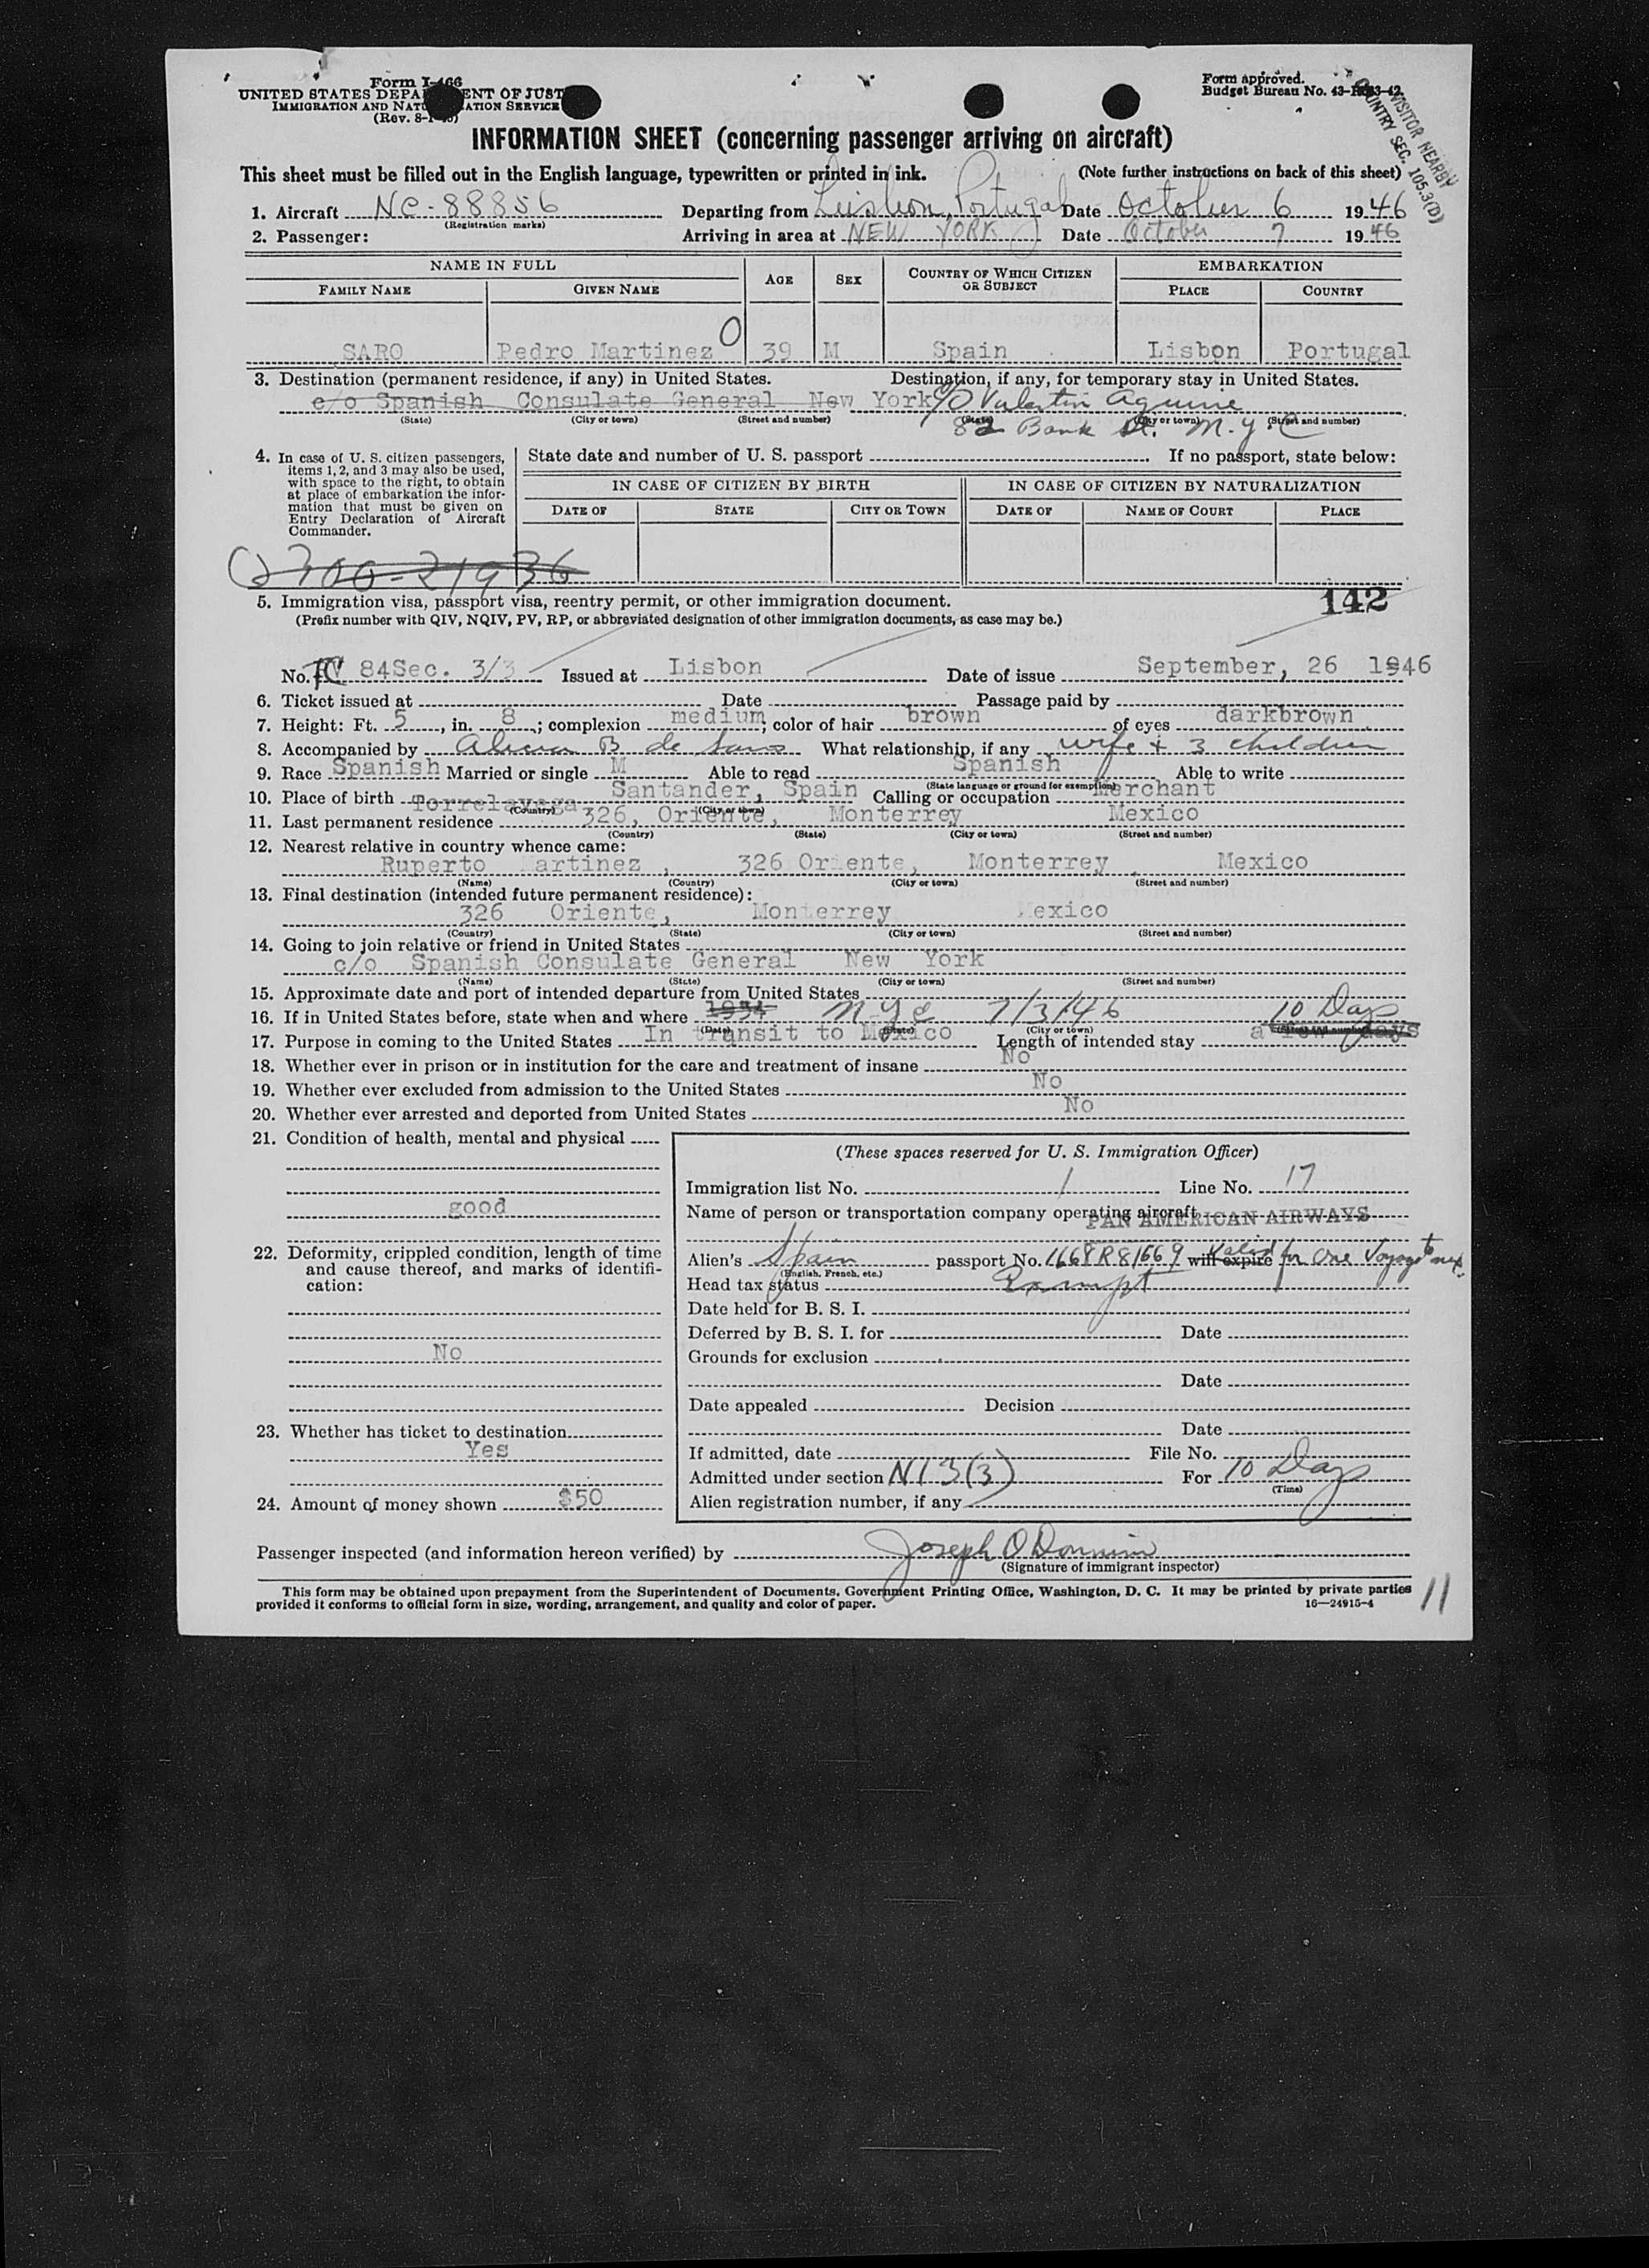 Form I-466
UNITED STATES DEPA ENT OF JUST
IMMIGRATION AND NAT ATION SERVICE
(Rev. 8-1-45)
Form approved.
Budget Bureau No. 43-R
VISITOR NEARBY
COUNTRY SEC. 105.3(D)
INFORMATION SHEET (concerning passenger arriving on aircraft)
This sheet must be filled out in the English language, typewritten or printed in ink. (Note further instructions on back of this sheet)
1. Aircraft NC-88856 Departing from Lisbon, Portugal Date October 6 1946
(Registration marks)
2. Passenger: Arriving in area at NEW YORK Date October 7 1946
NAME IN FULL AGE SEX COUNTRY OF WHICH CITIZEN OR SUBJECT EMBARKATION
FAMILY NAME GIVEN NAME PLACE COUNTRY
SARO Pedro Martinez O 39 M Spain Lisbon Portugal
3. Destination (permanent residence, if any) in United States. Destination, if any, for temporary stay in United States.
c/o Spanish Consulate General New York c/o Valentin Aguirre
(State) (City or town) (Street and number) (State) (City or town) (Street and number)
82 Bank St. N.Y.C
4. In case of U. S. citizen passengers, items 1, 2, and 3 may also be used, with space to the right, to obtain at place of embarkation the information that must be given on Entry Declaration of Aircraft Commander.
State date and number of U. S. passport If no passport, state below:
IN CASE OF CITIZEN BY BIRTH IN CASE OF CITIZEN BY NATURALIZATION
DATE OF STATE CITY OR TOWN DATE OF NAME OF COURT PLACE
142
5. Immigration visa, passport visa, reentry permit, or other immigration document.
(Prefix number with QIV, NQIV, PV, RP, or abbreviated designation of other immigration documents, as case may be.)
No. TC 84Sec. 3/3 Issued at Lisbon Date of issue September, 26 1946
6. Ticket issued at Date Passage paid by
7. Height: Ft. 5, in. 8; complexion medium; color of hair brown of eyes darkbrown
8. Accompanied by Alicia B de Saro What relationship, if any wife + 3 children
9. Race Spanish Married or single M Able to read Spanish Able to write
(State language or ground for exemption)
10. Place of birth Torrelavega Santander, Spain Calling or occupation Merchant
(Country) (City or town)
11. Last permanent residence 326, Oriente, Monterrey Mexico
(Country) (State) (City or town) (Street and number)
12. Nearest relative in country whence came:
Ruperto artinez , 326 Oriente, Monterrey , Mexico
(Name) (Country) (City or town) (Street and number)
13. Final destination (intended future permanent residence):
326 Oriente, Monterrey exico
(Country) (State) (City or town) (Street and number)
14. Going to join relative or friend in United States
c/o Spanish Consulate General New York
(Name) (State) (City or town) (Street and number)
15. Approximate date and port of intended departure from United States
16. If in United States before, state when and where 1934 N.Y.C 7/3/46 10 Days
(Date) (State) (City or town) (Street and number)
17. Purpose in coming to the United States In transit to Mexico Length of intended stay a few days
18. Whether ever in prison or in institution for the care and treatment of insane No
19. Whether ever excluded from admission to the United States No
20. Whether ever arrested and deported from United States No
21. Condition of health, mental and physical
good
22. Deformity, crippled condition, length of time and cause thereof, and marks of identification:
No
23. Whether has ticket to destination
Yes
24. Amount of money shown $50
(These spaces reserved for U. S. Immigration Officer)
Immigration list No. 1 Line No. 17
Name of person or transportation company operating aircraft PAN AMERICAN AIRWAYS
Alien's Spain passport No. 1668R81669 will expire Valid for one Voyage to Mex.
(English, French, etc.)
Head tax status Exempt
Date held for B. S. I.
Deferred by B. S. I. for Date
Grounds for exclusion
Date
Date appealed Decision
Date
If admitted, date File No.
Admitted under section N13(3) For 10 Days
(Time)
Alien registration number, if any
Passenger inspected (and information hereon verified) by Joseph
(Signature of immigrant inspector)
This form may be obtained upon prepayment from the Superintendent of Documents, Government Printing Office, Washington, D. C. It may be printed by private parties
provided it conforms to official form in size, wording, arrangement, and quality and color of paper. 16—24915-4
11